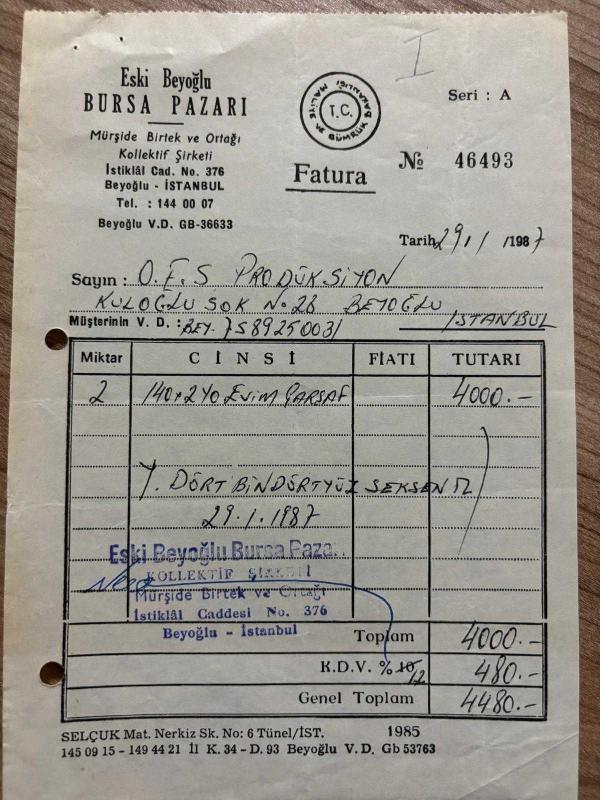 I
Eski Beyoğlu
BURSA PAZARI
Mürşide Birtek ve Ortağı
Kollektif Şirketi
İstiklâl Cad. No. 376
Beyoğlu - İSTANBUL
Tel. : 144 00 07
Beyoğlu V.D. GB-36633
T.C.
MALİYE VE GÜMRÜK BAKANLIĞI
Fatura
Seri : A
№ 46493
Tarih 29/1/1987
Sayın : O.E.S PRODÜKSİYON
KULOĞLU SOK No.28 BEYOĞLU
Müşterinin V. D. : BEY. 7589250031 İSTANBUL
Miktar CİNSİ FİATI TUTARI
2 140+240 EVİM ÇARŞAF 4000.-
Y. DÖRTBİNDÖRTYÜZ SEKSEN TL
29.1.1987
Eski Beyoğlu Bursa Pazarı
KOLLEKTİF ŞİRKETİ
Mürşide Birtek ve Ortağı
İstiklâl Caddesi No. 376
Beyoğlu - İstanbul
Toplam 4000.-
K.D.V. % 10/12 480.-
Genel Toplam 4480.-
SELÇUK Mat. Nerkiz Sk. No: 6 Tünel/İST. 1985
145 09 15 - 149 44 21 İl K. 34 - D. 93 Beyoğlu V. D. Gb 53763